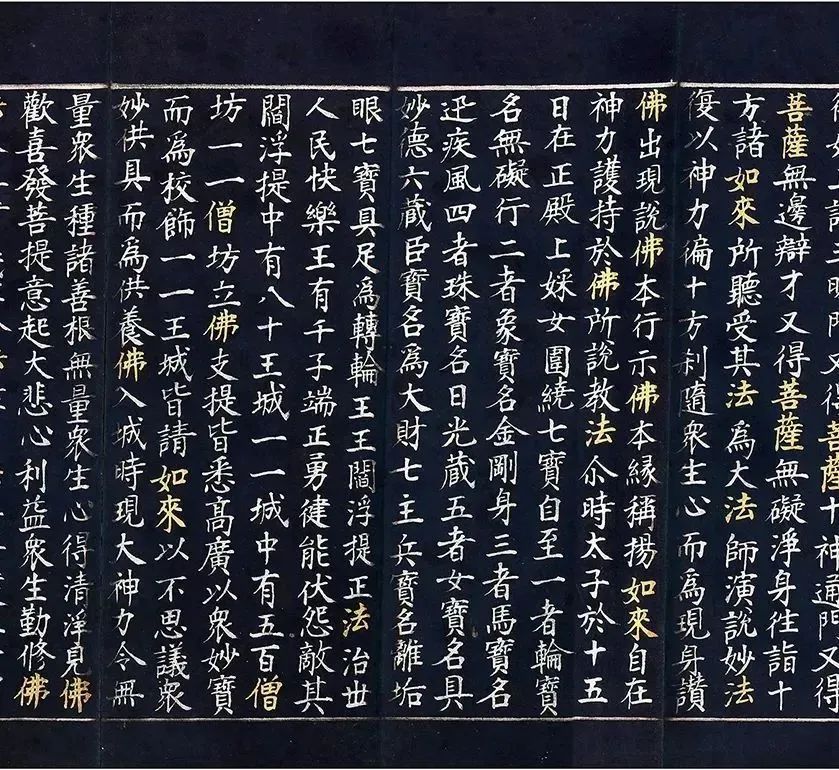 門又得菩薩十神通門又得
菩薩無邊辯才又得菩薩無礙淨身徃詣十
方諸如來所聽受其法爲大法師演說妙法
復以神力徧十方刹隨衆生心而爲現身讚
佛出現說佛本行示佛本縁稱揚如來自在
神力護持於佛所說教法尒時太子於十五
日在正殿上婇女圍繞七寶自至一者輪寶
名無礙行二者象寶名金剛身三者馬寶名
迅疾風四者珠寶名日光藏五者女寶名具
妙德六藏臣寶名爲大財七主兵寶名離垢
眼七寶具足爲轉輪王王閻浮提正法治世
人民快樂王有千子端正勇健能伏怨敵其
閻浮提中有八十王城一一城中有五百僧
坊一一僧坊立佛支提皆悉髙廣以衆妙寶
而爲校飾一一王城皆請如來以不思議衆
妙供具而爲供養佛入城時現大神力令無
量衆生種諸善根無量衆生心得清淨見佛
歡喜發菩提意起大悲心利益衆生勤修佛